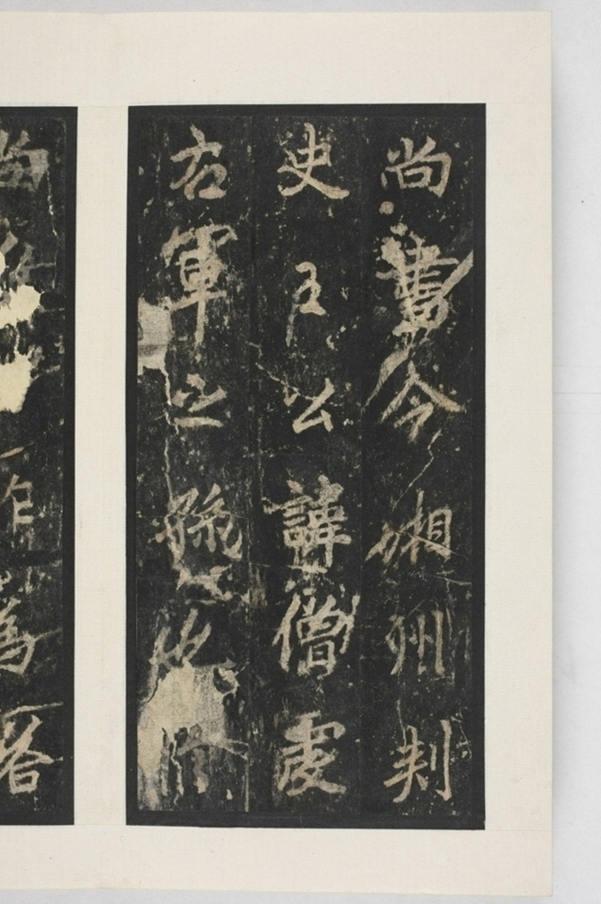 尚書令湘州刺
史王公諱僧虔
右軍之孫也
為